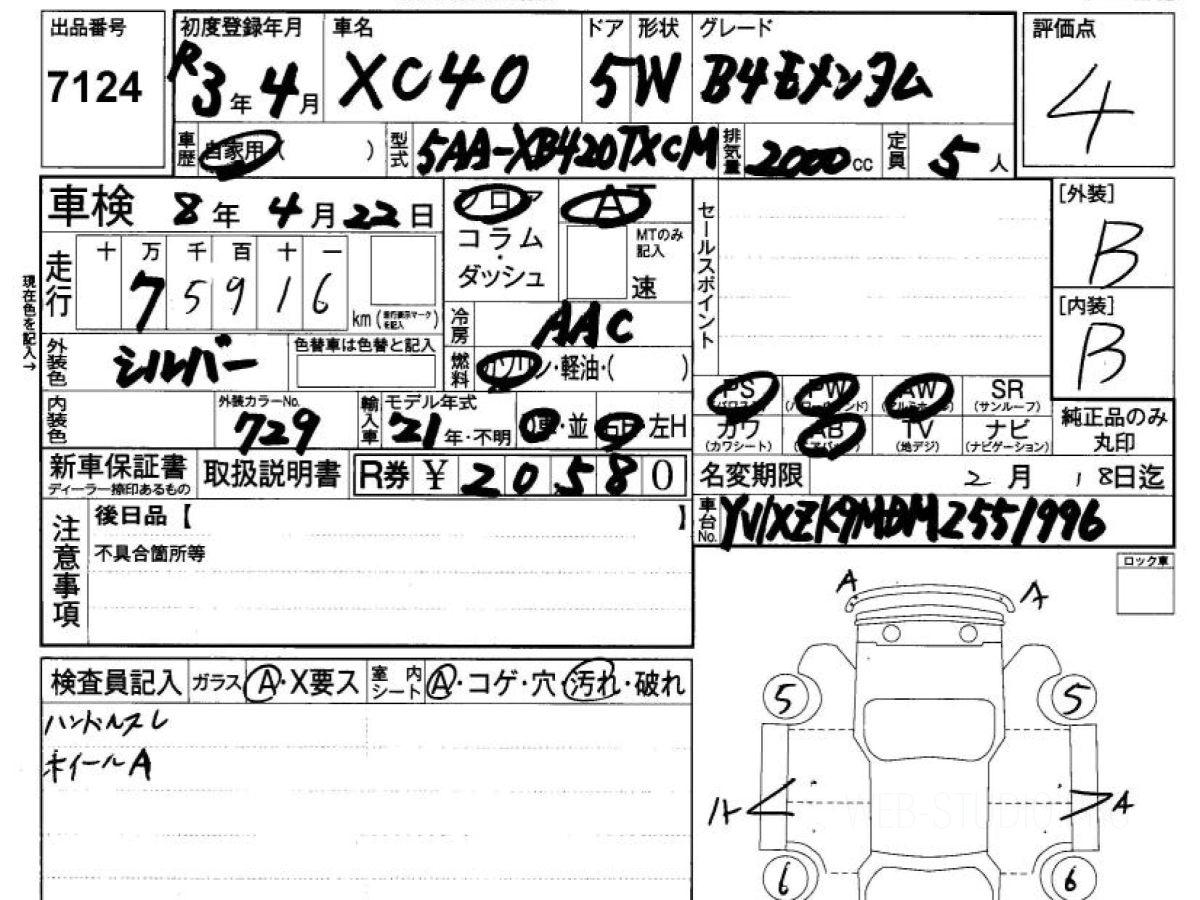 出品番号
7124
初度登録年月
R3年4月
車名
XC40
ドア
5
形状
W
グレード
B4モメンタム
評価点
4
車歴
自家用( )
型式
5AA-XB420TXCM
排気量
2000cc
定員
5人
車検
8年4月22日
フロア
コラム・ダッシュ
AT
MTのみ記入
速
セールスポイント
[外装]
B
[内装]
B
現在色を記入→
走行
十 万 千 百 十 一
7 5 9 1 6
km(走行表示マークを記入)
冷房
AAC
外装色
シルバー
色替車は色替と記入
燃料
ガソリン・軽油・( )
内装色
外装カラーNo.
729
輸入車
モデル年式
21年・不明
D車・並
右H 左H
PS(パワステ)
PW(パワーウインド)
AW(アルミホイール)
SR(サンルーフ)
カワ(カワシート)
AB(エアバッグ)
TV(地デジ)
ナビ(ナビゲーション)
純正品のみ丸印
新車保証書
ディーラー捺印あるもの
取扱説明書
R券 ¥ 20580
名変期限
2月18日迄
車台No.
YV1XZK9MDM2551996
注意事項
後日品【 】
不具合箇所等
ロック車
検査員記入
ガラス A・X要ス
室内シート A・コゲ・穴・汚れ・破れ
ハンドルスレ
ホイールA
A
A
5
5
A
A
WEB-STUDIO
6
6